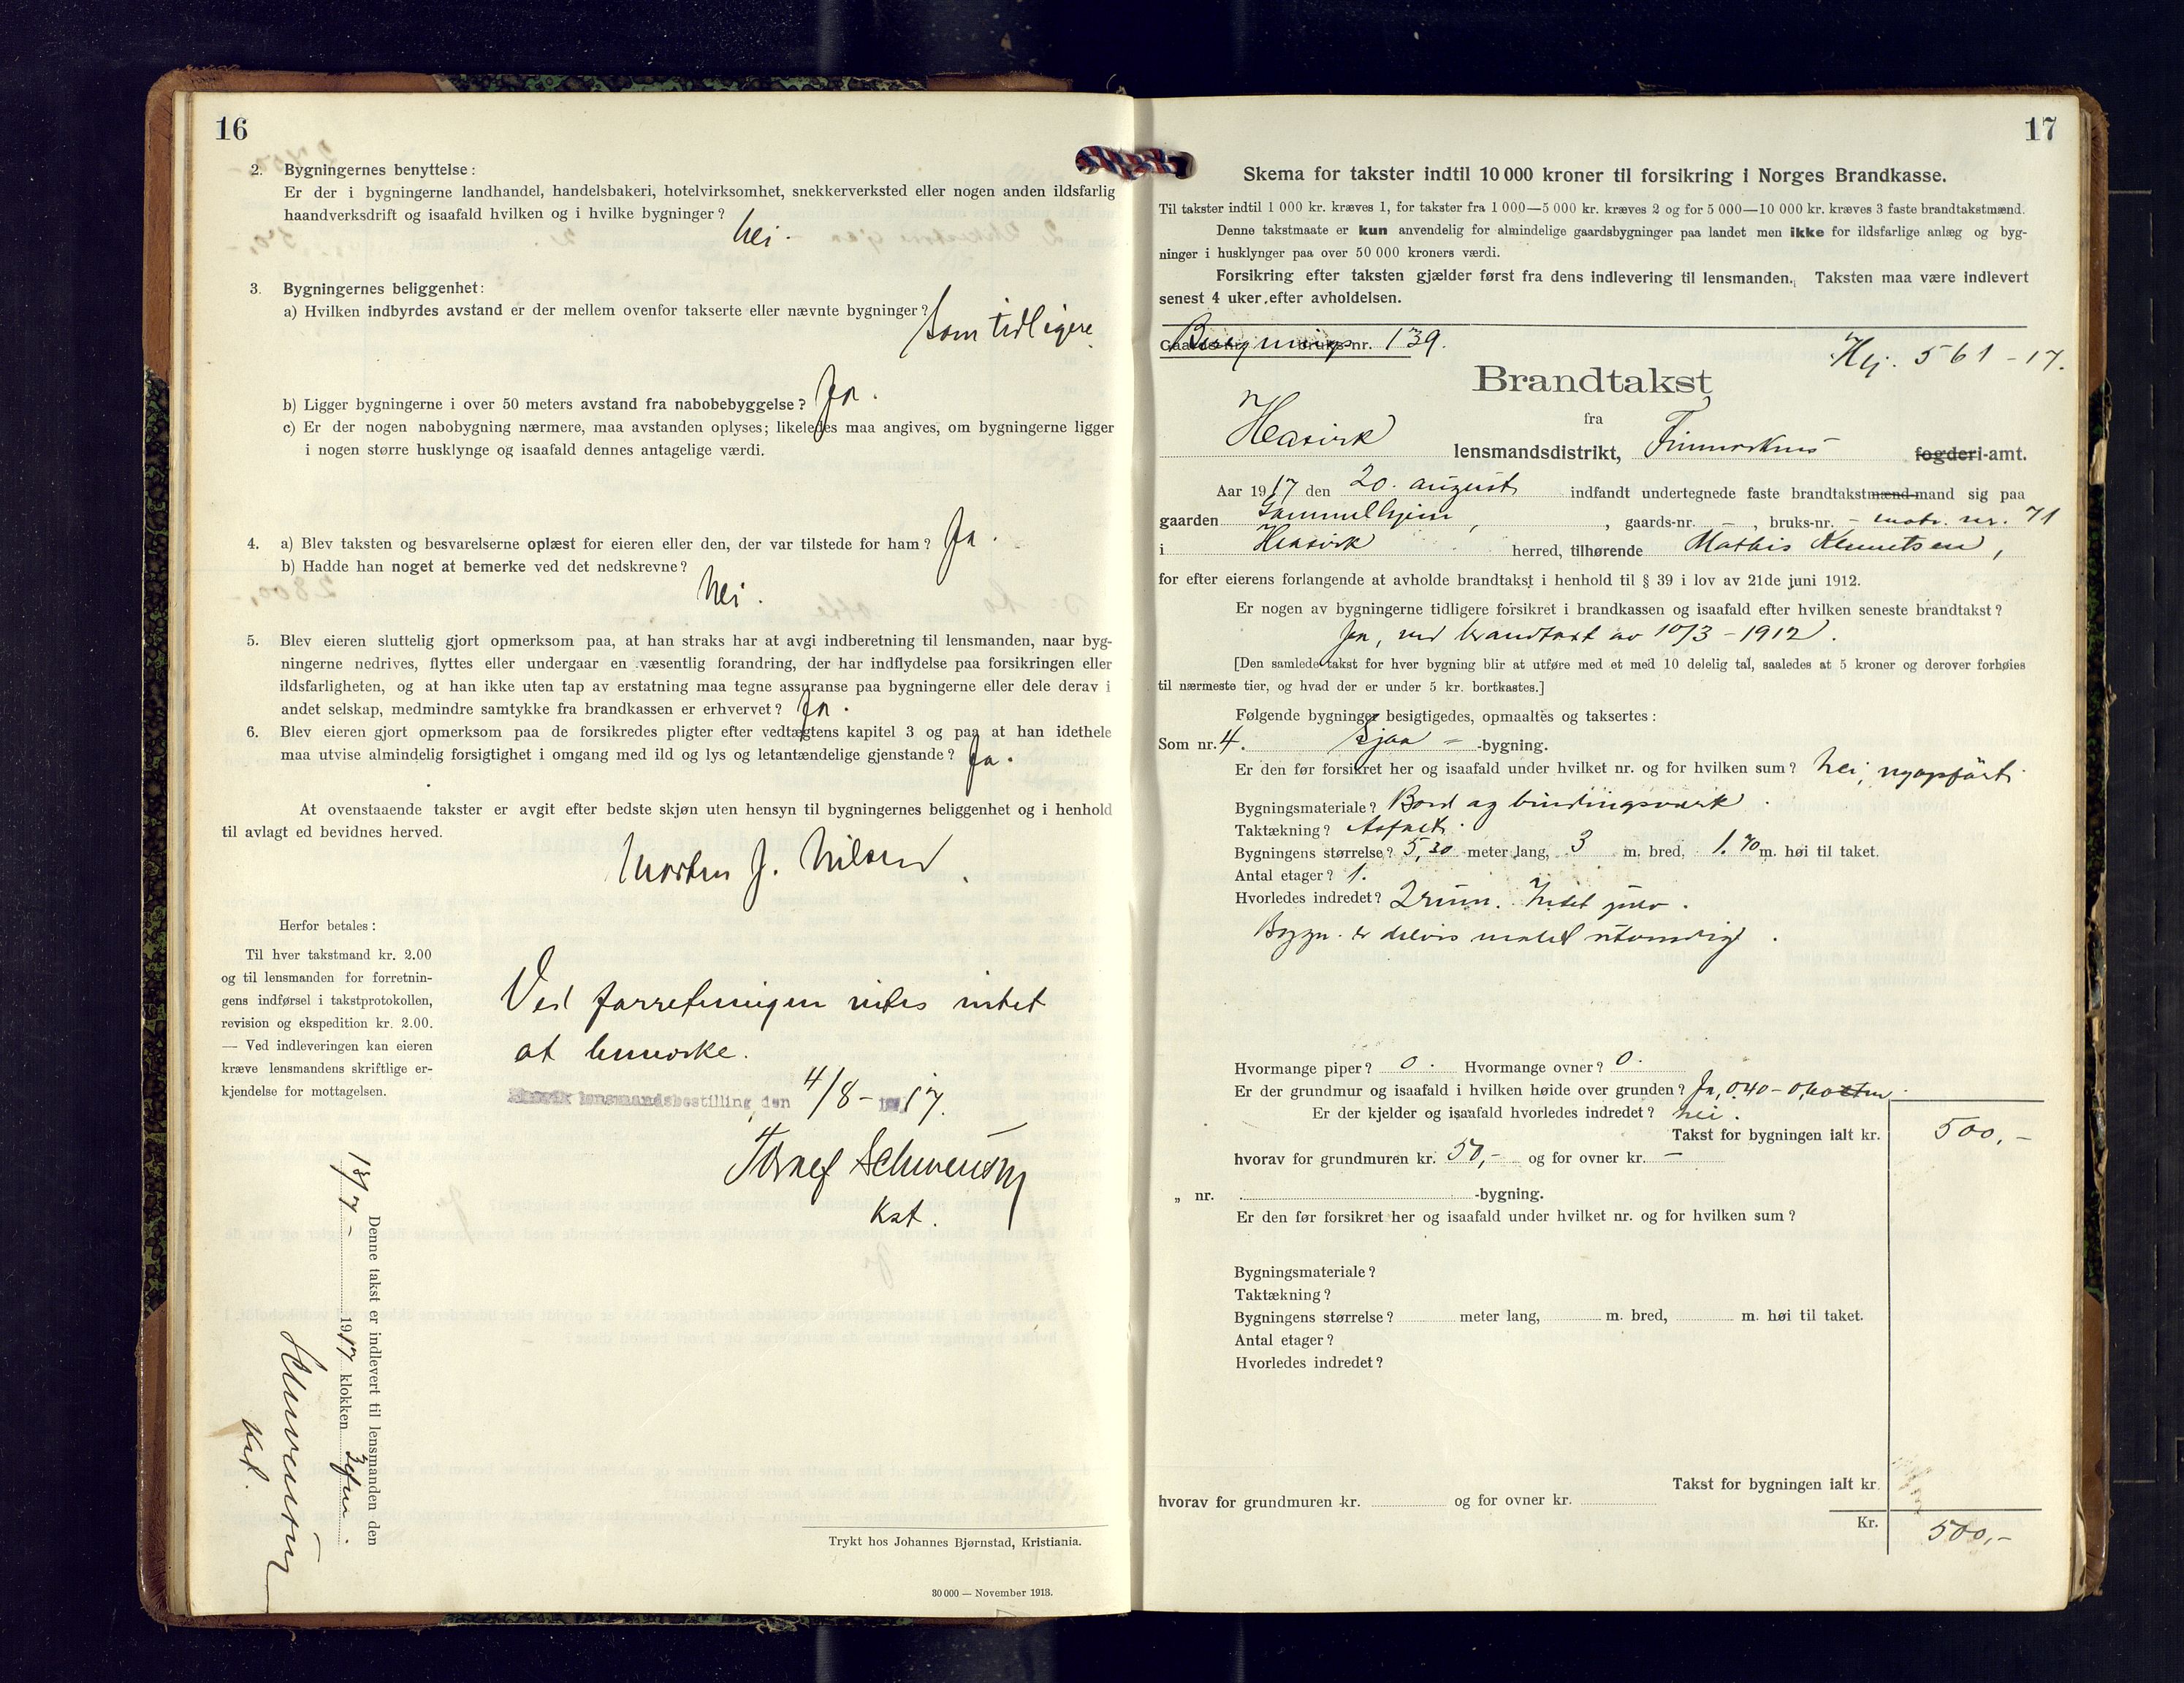 16
2. Bygningernes benyttelse:
Er der i bygningerne landhandel, handelsbakeri, hotelvirksomhet, snekkerverksted eller nogen anden ildsfarlig
haandverksdrift og isaafald hvilken og i hvilke bygninger? Nei.
3. Bygningernes beliggenhet:
a) Hvilken indbyrdes avstand er der mellem ovenfor takserte eller nævnte bygninger?
Som tidligere
b) Ligger bygningerne i over 50 meters avstand fra nabobebyggelse? Ja.
c) Er der nogen nabobygning nærmere, maa avstanden oplyses; likeledes maa angives, om bygningerne ligger
i nogen større husklynge og isaafald dennes antagelige værdi.
4. a) Blev taksten og besvarelserne oplæst for eieren eller den, der var tilstede for ham? Ja.
b) Hadde han noget at bemerke ved det nedskrevne?
Nei.
5. Blev eieren sluttelig gjort opmerksom paa, at han straks har at avgi indberetning til lensmanden, naar byg-
ningerne nedrives, flyttes eller undergaar en væsentlig forandring, der har indflydelse paa forsikringen eller
ildsfarligheten, og at han ikke uten tap av erstatning maa tegne assuranse paa bygningerne eller dele derav i
andet selskap, medmindre samtykke fra brandkassen er erhvervet? Ja.
6. Blev eieren gjort opmerksom paa de forsikredes pligter efter vedtægtens kapitel 3 og paa at han idethele
maa utvise almindelig forsigtighet i omgang med ild og lys og letantændelige gjenstande? Ja.
At ovenstaaende takster er avgit efter bedste skjøn uten hensyn til bygningernes beliggenhet og i henhold
til avlagt ed bevidnes herved.
Morten J. Nilsen
Herfor betales:
Til hver takstmand kr. 2.00
og til lensmanden for forretnin-
gens indførsel i takstprotokollen,
revision og ekspedition kr. 2.00.
— Ved indleveringen kan eieren
kræve lensmandens skriftlige er-
kjendelse for mottagelsen.
Ved forretningen vites intet
at bemerke.
lensmandsbestilling, den 4/8-1917.
Schwensen
Kst.
Denne takst er indlevert til lensmanden den
18/7 - 1917 klokken 3 efm.
Schwensen
Kst.
Trykt hos Johannes Bjørnstad, Kristiania.
30 000 — November 1913.
17
Skema for takster indtil 10 000 kroner til forsikring i Norges Brandkasse.
Til takster indtil 1 000 kr. kræves 1, for takster fra 1 000—5 000 kr. kræves 2 og for 5 000—10 000 kr. kræves 3 faste brandtakstmænd.
Denne takstmaate er kun anvendelig for almindelige gaardsbygninger paa landet men ikke for ildsfarlige anlæg og byg-
ninger i husklynger paa over 50 000 kroners værdi.
Forsikring efter taksten gjælder først fra dens indlevering til lensmanden. Taksten maa være indlevert
senest 4 uker efter avholdelsen.
Gaards-nr. bruks-nr. 139.
Hj. 561-17.
Brandtakst
fra
lensmandsdistrikt, Finmarkens fogderi-amt.
Aar 1917 den 20. august indfandt undertegnede faste brandtakstmænd-mand sig paa
gaarden Gammelhjem, gaards-nr. -, bruks-nr. - matr. nr. 71
i herred, tilhørende Mathis Knutsen,
for efter eierens forlangende at avholde brandtakst i henhold til § 39 i lov av 21de juni 1912.
Er nogen av bygningerne tidligere forsikret i brandkassen og isaafald efter hvilken seneste brandtakst?
Ja, ved brandtaxt av 10/3-1912.
[Den samlede takst for hver bygning blir at utføre med et med 10 delelig tal, saaledes at 5 kroner og derover forhøies
til nærmeste tier, og hvad der er under 5 kr. bortkastes.]
Følgende bygninger besigtigedes, opmaaltes og taksertes:
Som nr. 4. Sjaa - -bygning.
Er den før forsikret her og isaafald under hvilket nr. og for hvilken sum? Nei, nyopført.
Bygningsmateriale? Bord og bindingsverk.
Taktækning? Asfalt.
Bygningens størrelse? 5,30 meter lang, 3 m. bred, 1.70 m. høi til taket.
Antal etager? 1.
Hvorledes indredet? 2 rum. Intet gulv.
Bygn. er delvis malet utvendig.
Hvormange piper? 0. Hvormange ovner? 0.
Er der grundmur og isaafald i hvilken høide over grunden? Ja, 0.40 - 0,60
Er der kjelder og isaafald hvorledes indredet? Nei.
Takst for bygningen ialt kr. 500,-
hvorav for grundmuren kr. 50,- og for ovner kr. -
„ nr. -bygning.
Er den før forsikret her og isaafald under hvilket nr. og for hvilken sum?
Bygningsmateriale?
Taktækning?
Bygningens størrelse? meter lang, m. bred, m. høi til taket.
Antal etager?
Hvorledes indredet?
Takst for bygningen ialt kr.
hvorav for grundmuren kr. og for ovner kr.
Kr. 500,-